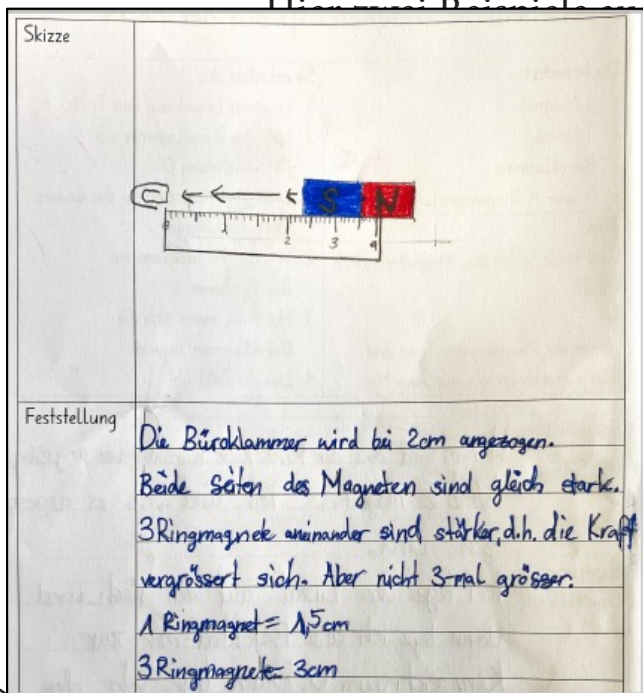 Hier zwei Beispiele
Skizze
S N
0 1 2 3 4
Feststellung
Die Büroklammer wird bei 2cm angezogen.
Beide Seiten des Magneten sind gleich stark.
3 Ringmagnete aneinander sind stärker, d.h. die Kraft
vergrössert sich. Aber nicht 3-mal grösser.
1 Ringmagnet = 1,5cm
3 Ringmagnete = 3cm